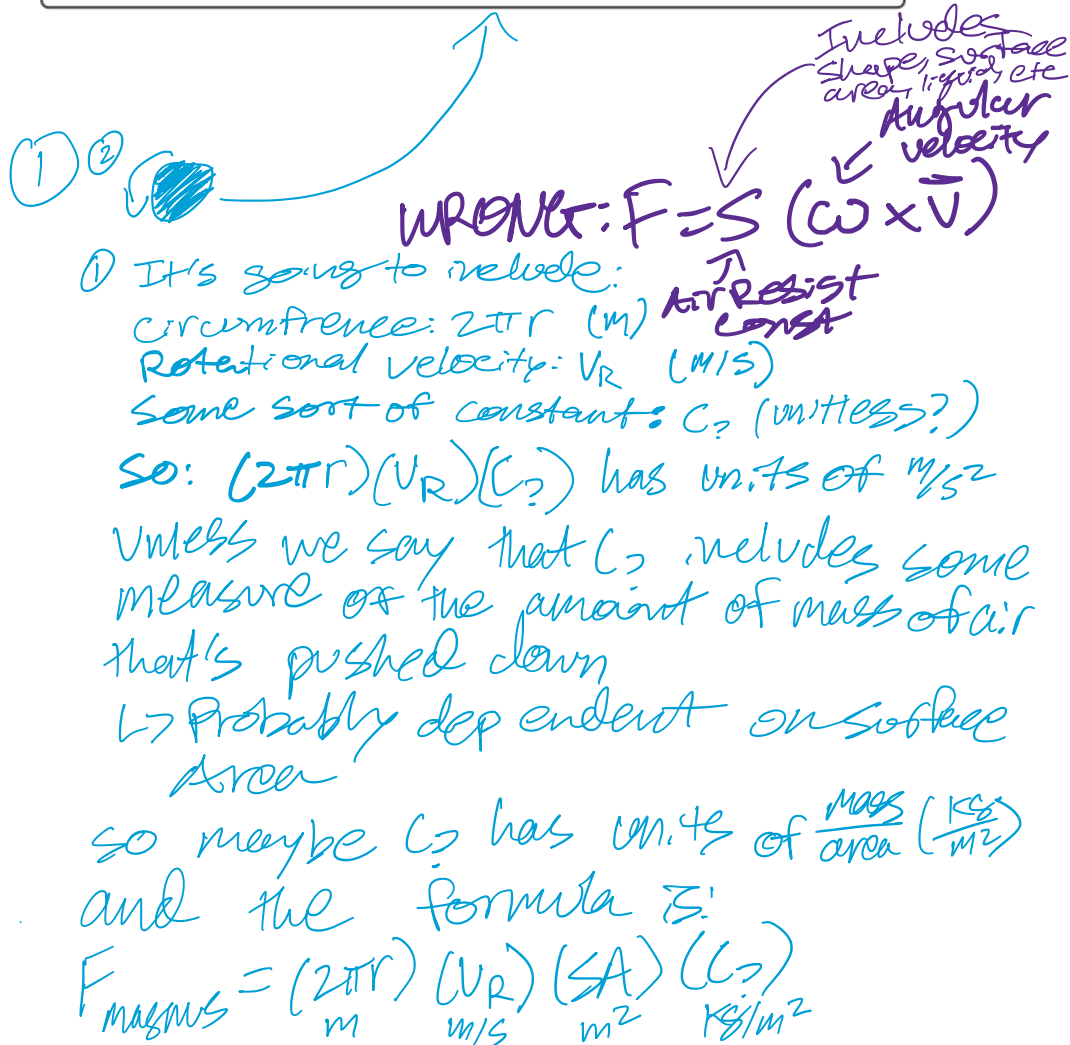 Includes
shape, surface
area, liquid, etc
Angular
velocity
① ②
WRONG: F = S (ω × v̄)
Air Resist
Const
① It's going to include:
circumfrence: 2πr (m)
Rotational velocity: V_R (m/s)
Some sort of constant: C? (unitless?)
So: (2πr)(V_R)(C?) has units of m/s²
Unless we say that C? includes some
measure of the amount of mass of air
that's pushed down
↳ Probably dependent on surface
Area
so maybe C? has units of mass/area (kg/m²)
and the formula is:
F_magnus = (2πr) (V_R) (SA) (C?)
m m/s m² kg/m²